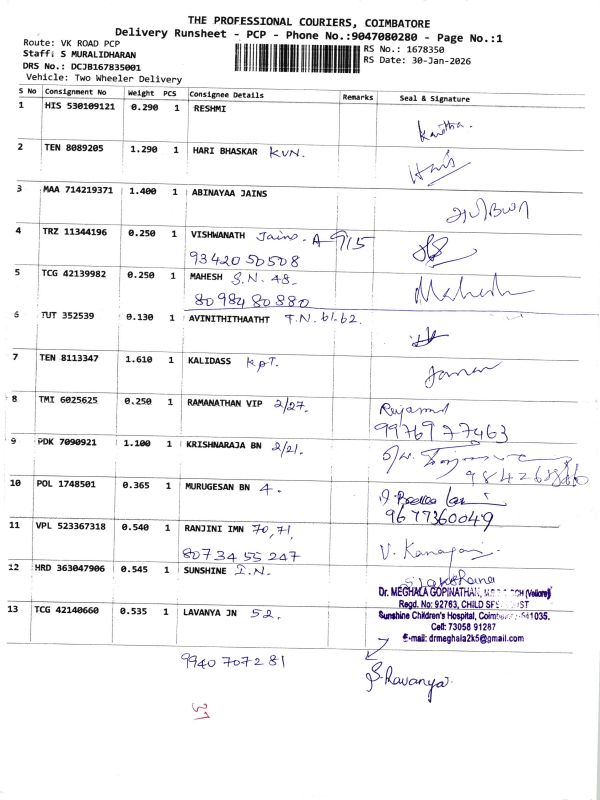 THE PROFESSIONAL COURIERS, COIMBATORE
Delivery Runsheet - PCP - Phone No.:9047080280 - Page No.:1
Route: VK ROAD PCP
Staff: S MURALIDHARAN
DRS No.: DCJB167835001
Vehicle: Two Wheeler Delivery
RS No.: 1678350
RS Date: 30-Jan-2026
S No Consignment No Weight PCS Consignee Details Remarks Seal & Signature
1 HIS 530109121 0.290 1 RESHMI
2 TEN 8089205 1.290 1 HARI BHASKAR KVN.
3 MAA 714219371 1.400 1 ABINAYAA JAINS
4 TRZ 11344196 0.250 1 VISHWANATH Jains. A 915
93420 50508
5 TCG 42139982 0.250 1 MAHESH S.N. 48. Mahesh
80984 80880
6 TUT 352539 0.130 1 AVINITHITHAATHT T.N. 61-62.
7 TEN 8113347 1.610 1 KALIDASS KPT.
8 TMI 6025625 0.250 1 RAMANATHAN VIP 2/27.
9976977463
9 PDK 7090921 1.100 1 KRISHNARAJA BN 2/21.
10 POL 1748501 0.365 1 MURUGESAN BN 4.
9677360049
11 VPL 523367318 0.540 1 RANJINI IMN 70,71,
80734 55 247
V.
12 HRD 363047906 0.545 1 SUNSHINE I.N.
Dr. MEGHALA GOPINATHAN, (Vellore)
Regd. No: 92763, CHILD
Sunshine Children's Hospital, 641035.
Cell: 73058 91287
E-mail: drmeghala2k5@gmail.com
13 TCG 42140660 0.535 1 LAVANYA JN 52.
9940 707281
37